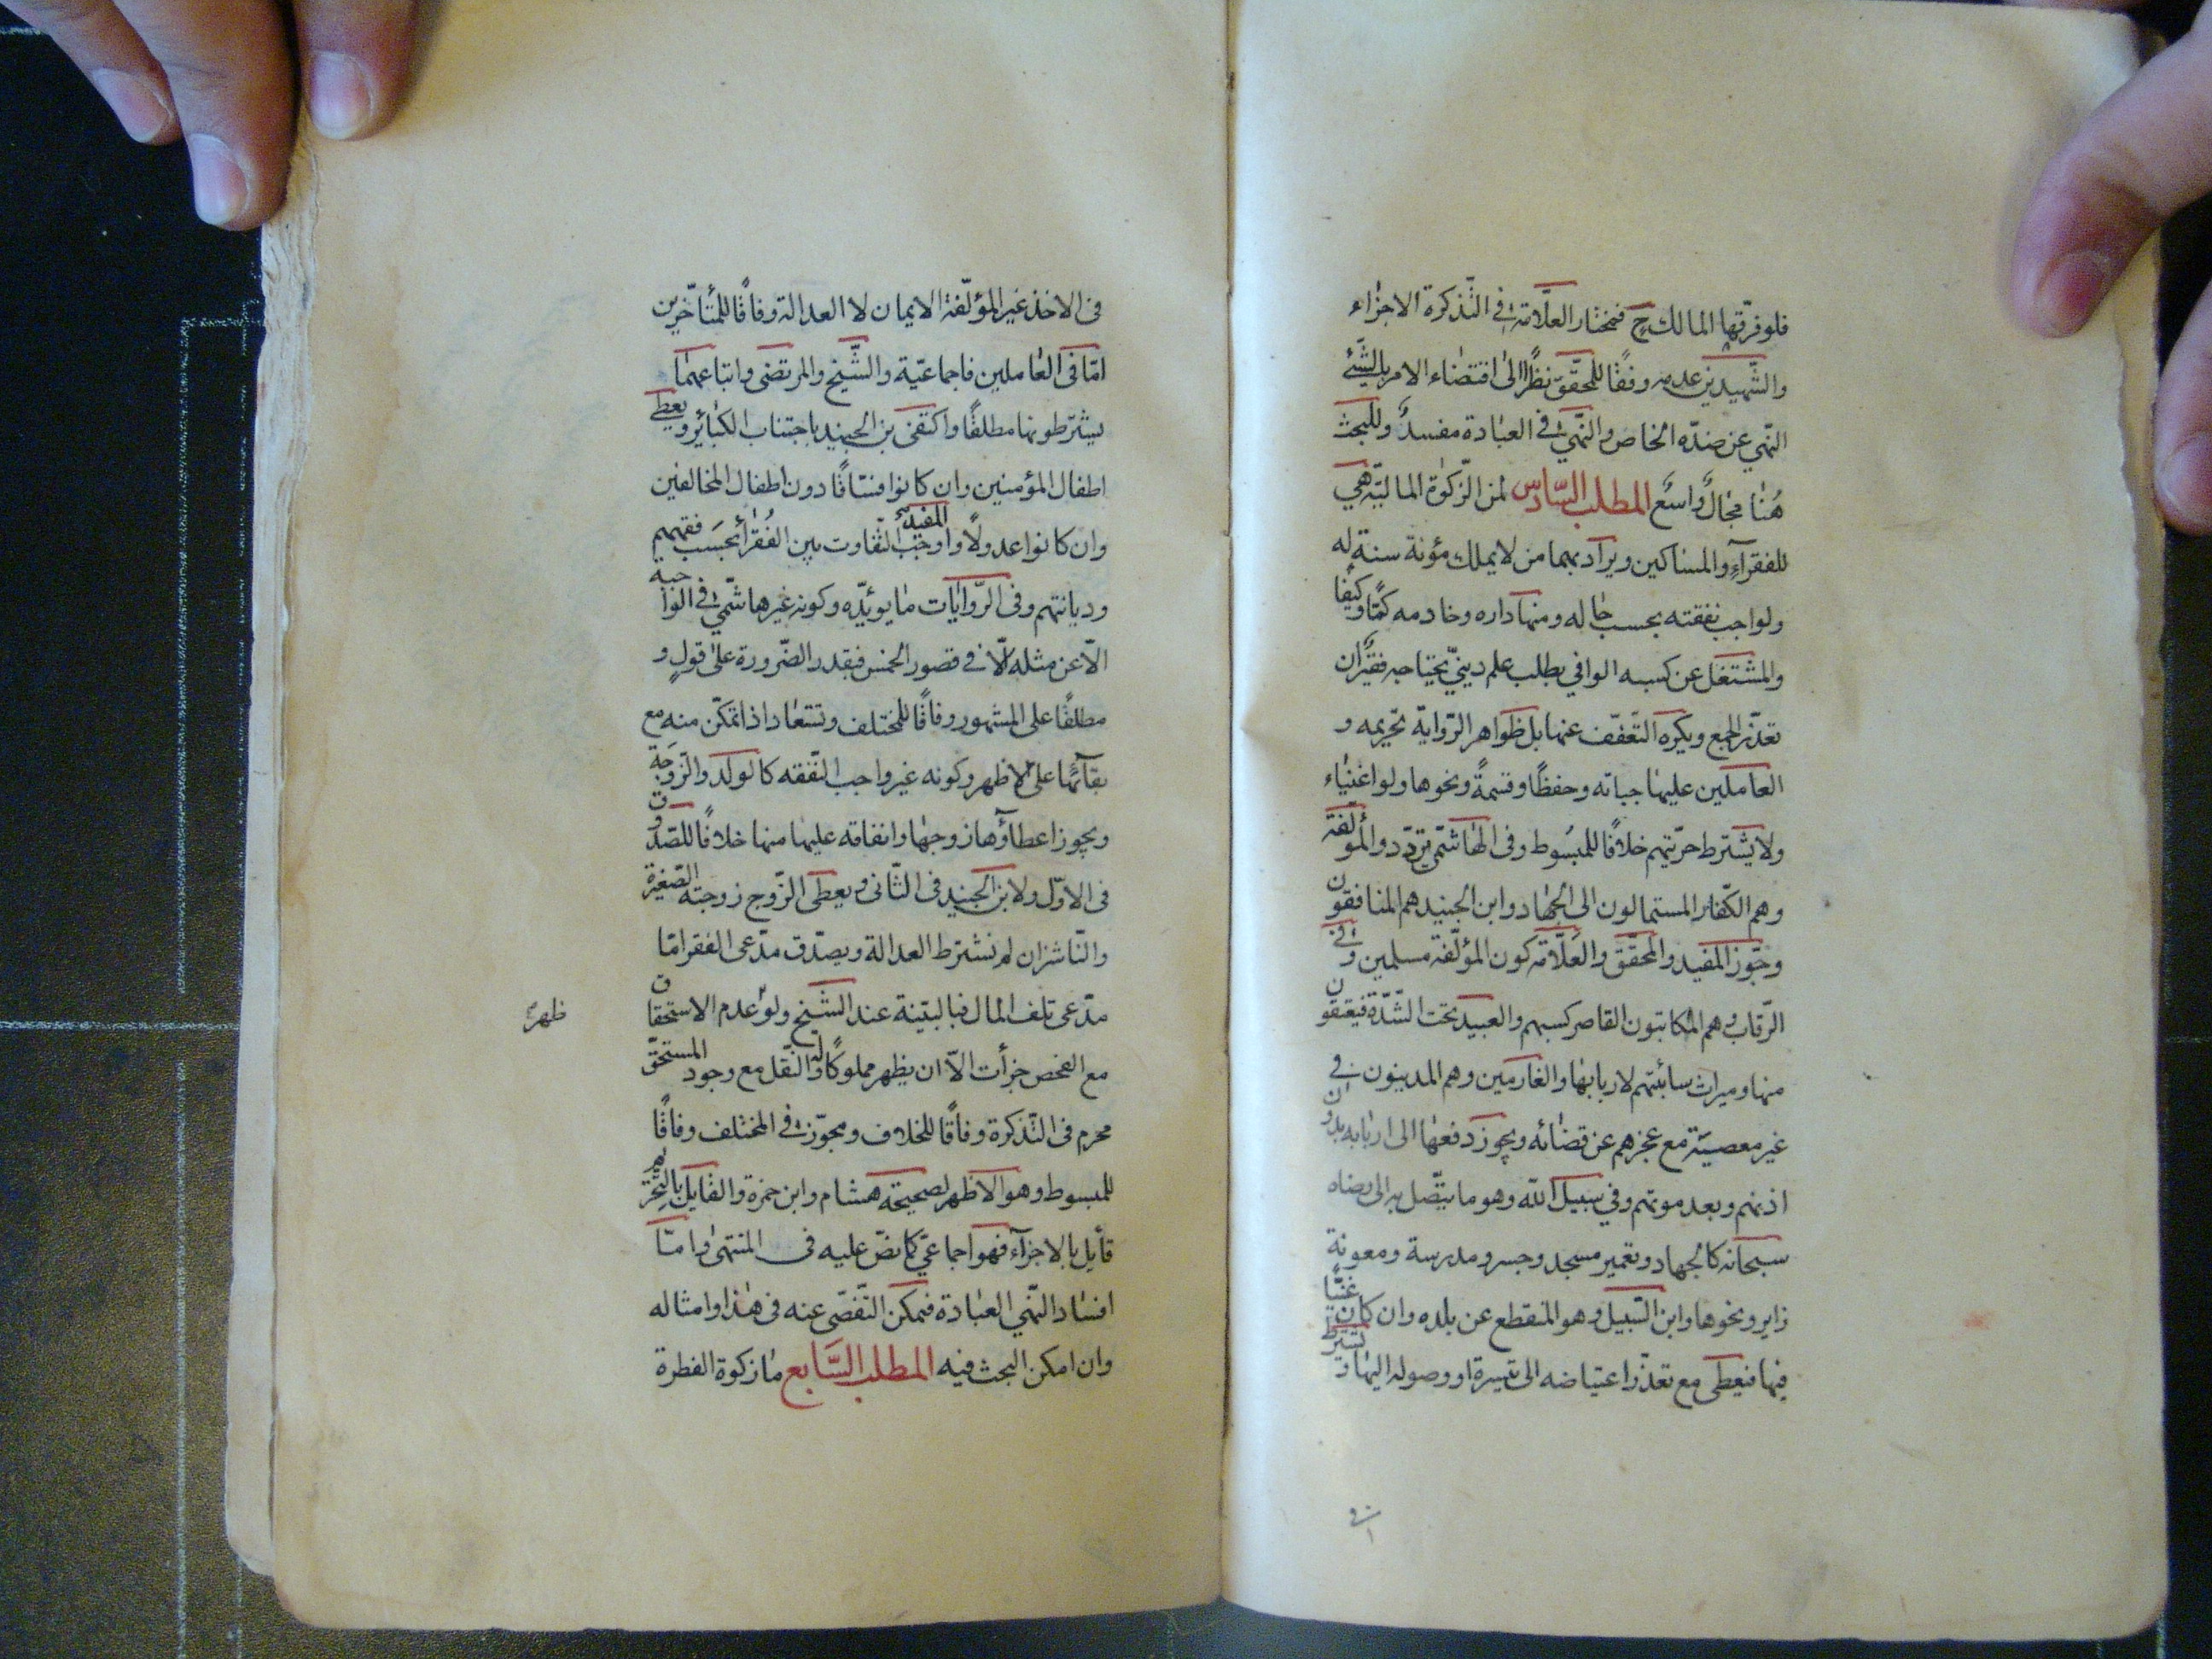 فلو فرّقها المالك ح فمختار العلّامة في التّذكرة الاجزاء
والشّهيدين عدمه وفقًا للمحقّق نظرًا الى اقتضاء الامر بالشّيئ
النّهي عن ضدّه الخاص والنّهي في العبادة مفسدٌ وللبحث
هُنا مجالٌ واسعٌ المطلب السّادس لمن الزّكوة الماليّة هي
للفقرآءِ والمساكين ويراد بهما من لا يملك مؤنة سنة له
ولواجب نفقته بحسب حاله ومنها داره وخادمه كمًّا وكيفًا
والمشتغل عن كسبه الوافي بطلب علم دينيّ يحتاجه فقيرٌ ان
تعذّر الجمع ويكره التّعفّف عنها بل ظواهر الرّواية تحريمه و
العاملين عليها جباته وحفظًا وقسمةً ونحوها ولو اغنياء
ولا يشترط حرّيتهم خلافًا للمبسُوط وفى الهاشمّي تردّد والمؤلّفة
وهم الكفّار المستمالون الى الجهاد وابن الجنيد هم المنافقون
وجوّز المفيد والمحقّق والعلّامة كون المؤلّفة مسلمين وفي
الرّقاب وهم المكاتبون القاصر كسبهم والعبيد تحت الشّدّة فيعتقون
منها وميراث سائبتهم لاربابها والغارمين وهم المدينون في
غير معصية مع عجزهم عن قضائه ويجوز دفعها الى اربابه بدون
اذنهم وبعد موتهم وفي سبيل الله وهو ما يتّصل به الى رضاه
سبحانه كالجهاد وتعمير مسجد وجسر ومدرسة ومعونة
زاير ونحوها وابن السّبيل وهو المنقطع عن بلده وان كان غنيًّا
فيها فيعطى مع تعذّر اعتياضه الى تيسرة او وصوله اليها وتشترط
في الاخذ غير المؤلّفة الايمان لا العدالة وفاقًا للمتأخّرين
امّا فى العاملين فاجماعيّة والشّيخ والمرتضى واتباعهما
يشترطونها مطلقًا واكتفى بن الجنيد باجتناب الكبائر ويعطى
اطفال المؤمنين وان كانوا فسّاقًا دون اطفال المخالفين
وان كانوا عدولًا واوجب المفيد التّفاوت بين الفُقرأ بحَسَب فقههم
وديانتهم وفى الرّوايات ما يويّده وكونه غير هاشمّي في الواجبه
الّا عن مثله الّا في قصور الخمس فبقدر الضّرورة على قولٍ و
مطلقًا على المشهور وفاقًا للمختلف وتستعاد اذا تمكّن منه مع
بقآئها على الاظهر وكونه غير واجب النّفقه كالولد والزّوجَة
ويجوز اعطاؤها زوجها وانفاقه عليها منها خلافًا للصّدوق
فى الاوّل ولابن الجنيد فى الثّانى ويعطى الزّوج زوجته الصّغيرة
والنّاشز ان لم نشترط العدالة ويصدّق مدّعى الفقر امّا
مدّعى تلف المال فبالبيّنة عند الشّيخ ولو عدم الاستحقاق
ظهر
مع الفحص جزأت الّا ان يظهر مملوكًا له والنّقل مع وجود المستحقّ
محرم فى التّذكرة وفاقًا للخلاف ومجوّز في المختلف وفاقًا
للمبسوط وهو الاظهر لصحيحة هشام وابن حمزة والقايل بالتّحريم
قأيل بالاجزآء فهو اجماعيّ كما نصّ عليه فى المنتهى وامّا
افساد النّهي العبادة فيمكن التّفصّى عنه فى هذا وامثاله
وان امكن البحث فيه المطلب السَّابع ما زكوة الفطرة